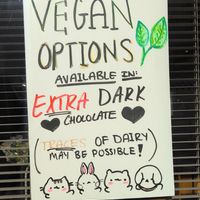 VEGAN
OPTIONS
AVAILABLE IN:
EXTRA DARK
CHOCOLATE
(TRACES OF DAIRY
MAY BE POSSIBLE!)